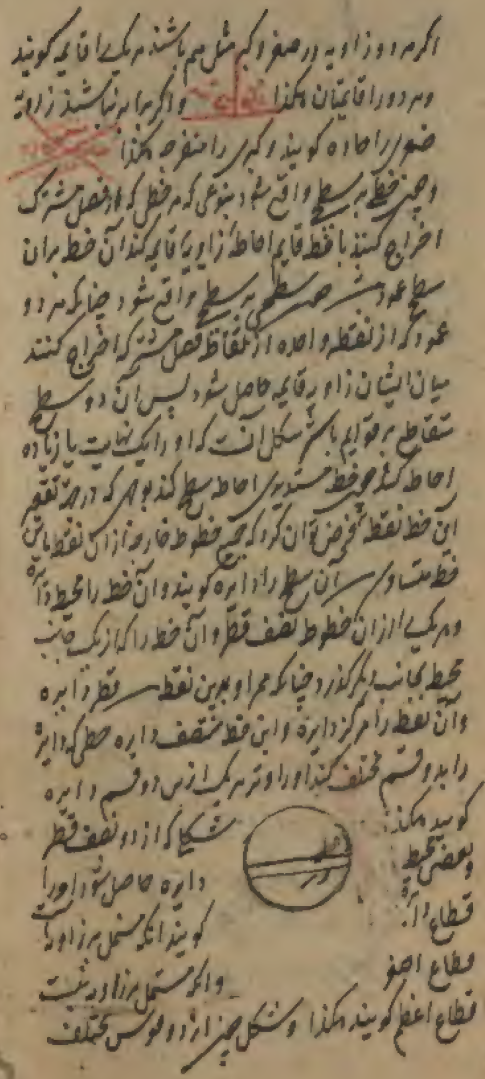 اگر هر دو زاویه در صغر و کبر مثل هم باشند هر یکی را قایمه گویند
و هر دو را قایمتان هکذا و اگر برابر نباشند زاویه
صغری را حاده گویند و کبری را منفرجه هکذا
و چون خطی بر سطح واقع شود بنوعی که هر خطی که از فصل مشترک
اخراج کنند با خط قایم احاطه زاویه قایمه کند آن خط بران
سطح عمود سطحی بر سطح واقع شود چنانکه هر دو
عمود که از نقطه واحده از نقاط فصل مشترک اخراج کنند
میان ایشان زاویه قایمه حاصل شود پس آن دو سطح
متقاطع بر قوایم باشد شکل آنست که او را یک نهایت یا زیاده
احاطه کند چون خط مستدیری احاطه سطح کند بوجهی که در جهت تقعیر
آن خط نقطه فرض توان کرد که جمیع خطوط خارجه از آن نقطه باین
خط متساوی آن سطح را دایره گویند و آن خط را محیط دایره
و هر یکی را از آن خطوط نصف قطر و آن خط را که از یک جانب
محیط بجانب دیگر گذرد چنانکه ممر او باین نقطه قطر دایره
و آن نقطه را مرکز دایره و این خط منصف دایره خطی که دایره
را بدو قسم مختلف کند او را وتر هر یک ازین دو قسم دایره
گویند هکذا شکلی که از دو نصف قطر
و بعضی محیط دایره حاصل شود او را
قطاع دایره گویند آنکه مشتمل بر زاویه
قطاع اصغر و اگر مشتمل بر زاویه نیست
قطاع اعظم گویند هکذا و شکل چون از دو قوس مختلف
قطر
وتر